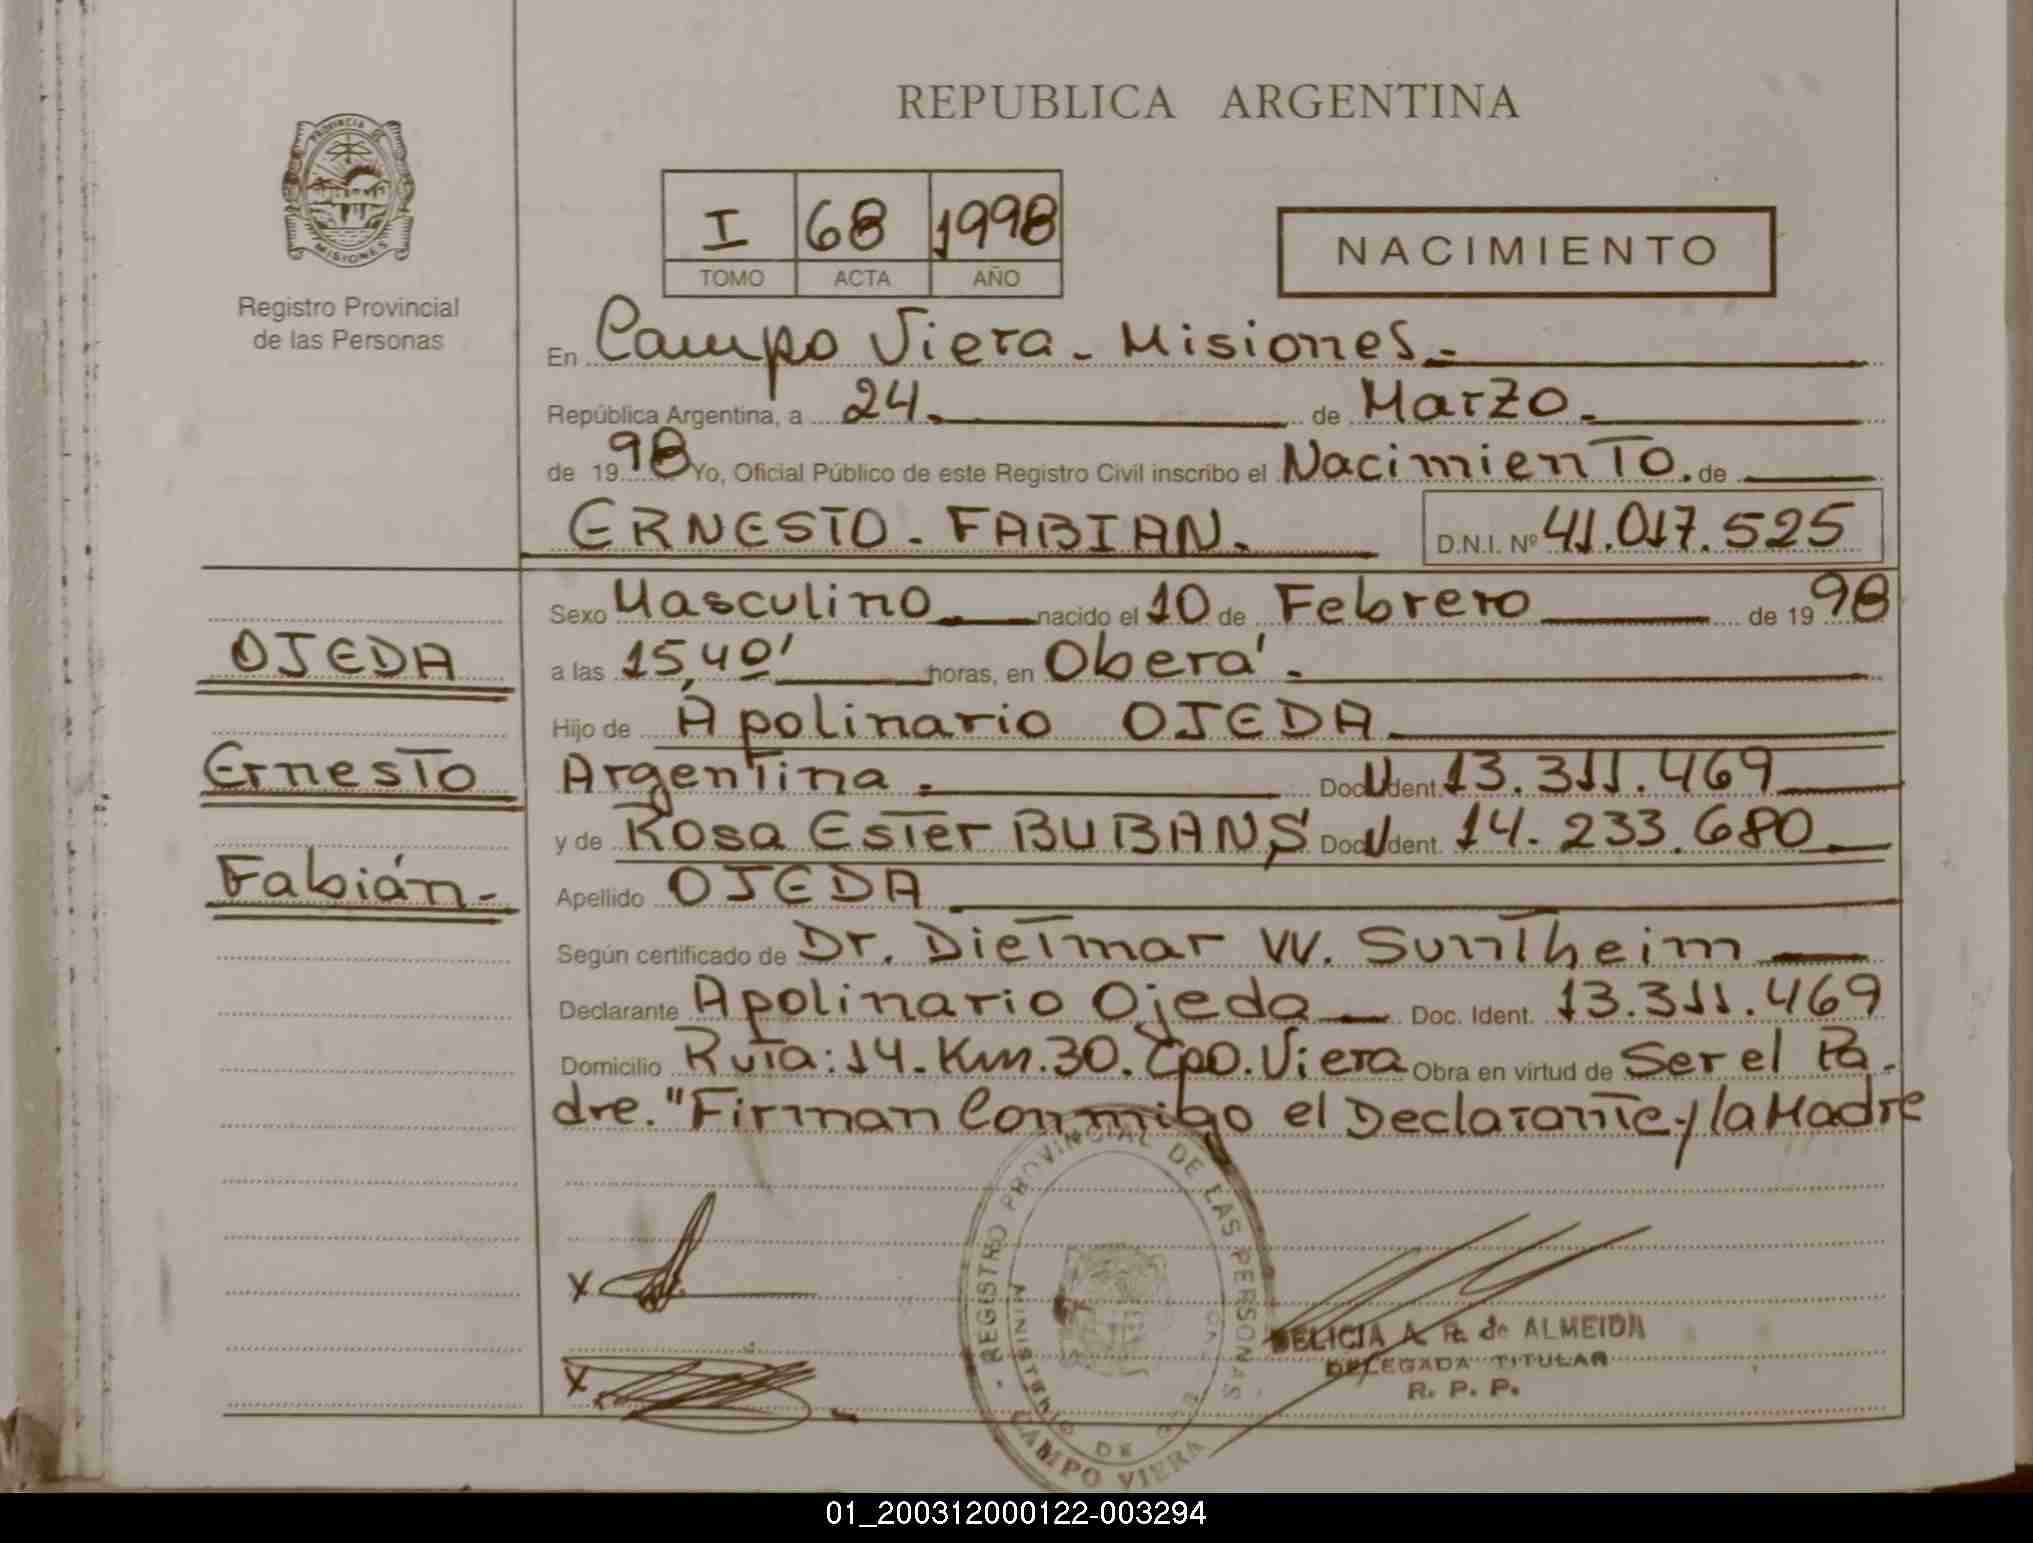 REPUBLICA ARGENTINA
PROVINCIA DE
MISIONES
Registro Provincial
de las Personas
I 68 1998
TOMO ACTA AÑO
NACIMIENTO
En Campo Viera - Misiones.-
República Argentina, a 24. de Marzo.
de 1998 Yo, Oficial Público de este Registro Civil inscribo el Nacimiento. de
ERNESTO - FABIAN.
D.N.I. Nº 41.017.525
OJEDA
Ernesto
Fabián.-
Sexo Masculino nacido el 10 de Febrero de 1998
a las 15,40' horas, en Oberá.
Hijo de Apolinario OJEDA
Argentina. Doc U dent 13.311.469
y de Rosa Ester BUBANS Doc U dent 14.233.680
Apellido OJEDA
Según certificado de Dr. Dietmar W. Suntheim
Declarante Apolinario Ojeda Doc. Ident. 13.311.469
Domicilio Ruta: 14. Km. 30. Cpo. Viera Obra en virtud de Ser el Pa.
dre. "Firman Conmigo el Declarante y la Madre
X
X
REGISTRO PROVINCIAL DE LAS PERSONAS
MINISTERIO DE
CAMPO VIERA
DELICIA A. R. de ALMEIDA
DELEGADA TITULAR
R. P. P.
01_200312000122-003294